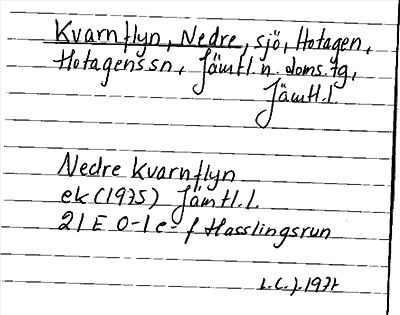 Kvarnflyn, Nedre, sjö, Hotagen,
Hotagens sn, Jämtl. n. doms. tg,
Jämtl. l.
Nedre Kvarnflyn
ek (1975) Jämtl. l.
21 E 0-1 e-f Hasslingsrun
L.C.J.